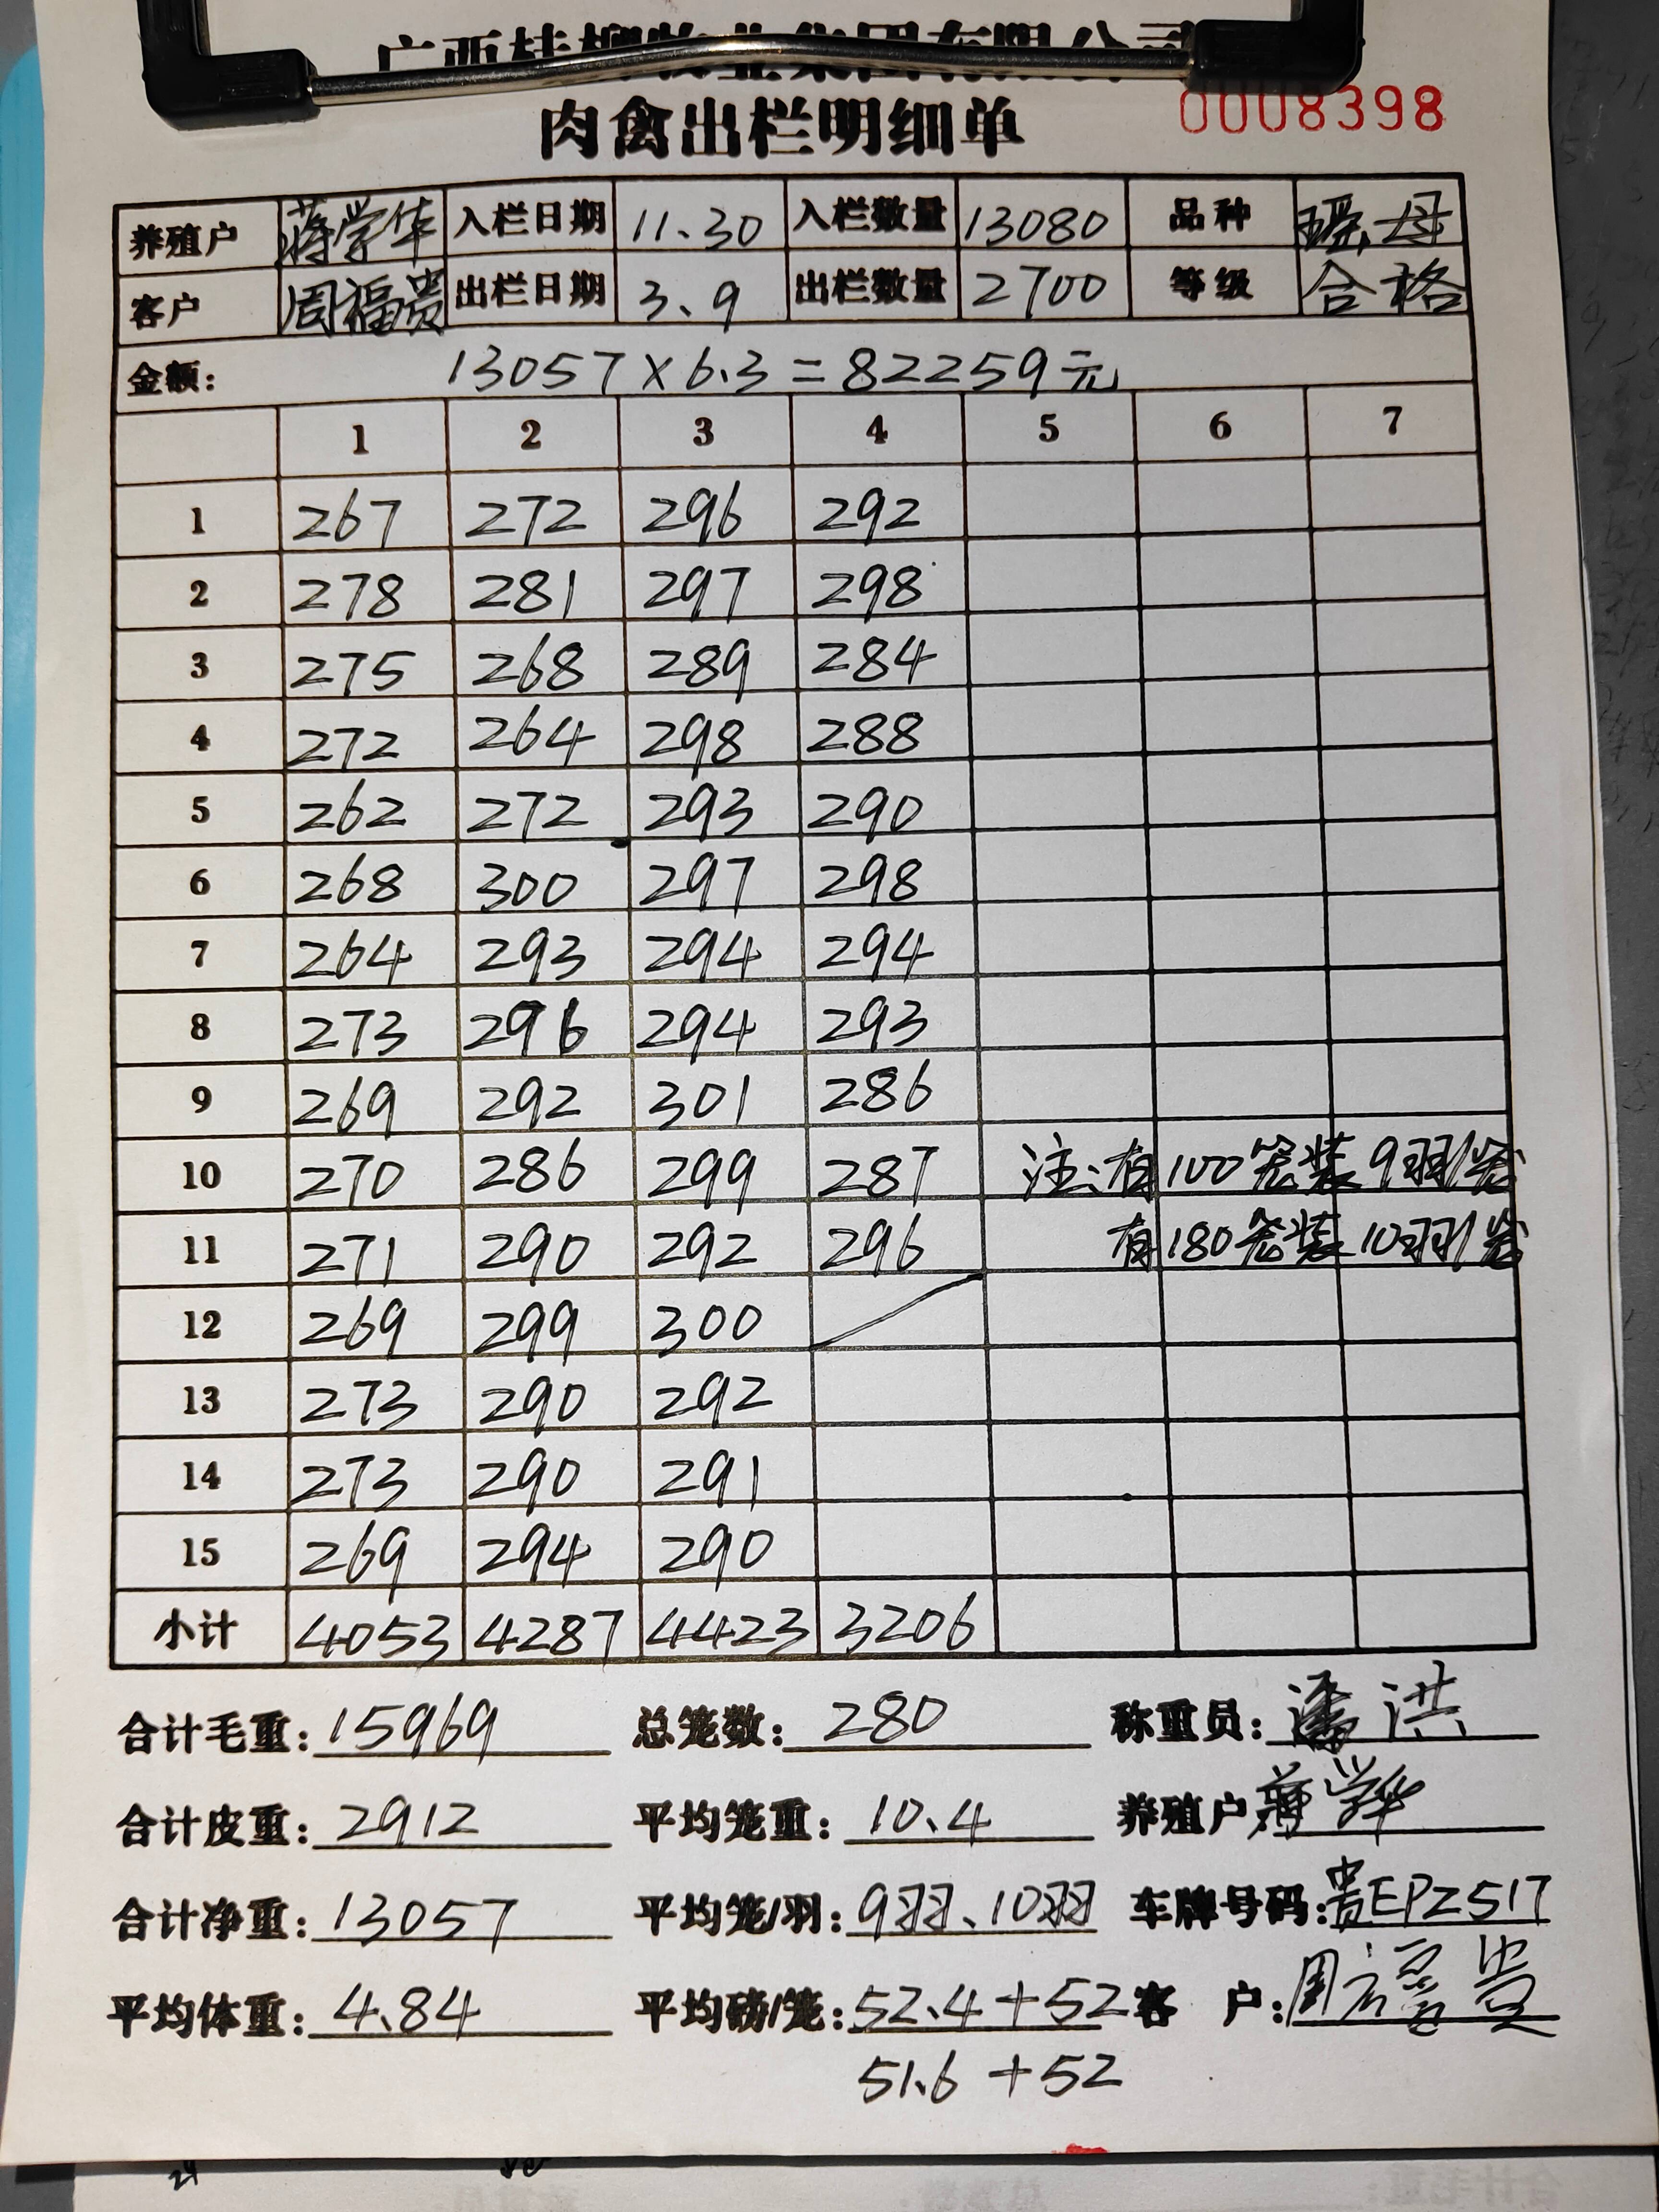 肉禽出栏明细单 0008398
养殖户 蒋学华 入栏日期 11.30 入栏数量 13080 品种 瑶母
客户 周福贵 出栏日期 3.9 出栏数量 2700 等级 合格
金额: 13057×6.3=82259元
1 2 3 4 5 6 7
1 267 272 296 292
2 278 281 297 298
3 275 268 289 284
4 272 264 298 288
5 262 272 293 290
6 268 300 297 298
7 264 293 294 294
8 273 296 294 293
9 269 292 301 286
10 270 286 299 287 注:有100笼装9羽/笼
11 271 290 292 296 有180笼装10羽/笼
12 269 299 300
13 273 290 292
14 273 290 291
15 269 294 290
小计 4053 4287 4423 3206
合计毛重: 15969 总笼数: 280 称重员: 潘洪
合计皮重: 2912 平均笼重: 10.4 养殖户 蒋学华
合计净重: 13057 平均笼/羽: 9羽、10羽 车牌号码: 贵EPZ517
平均体重: 4.84 平均磅/笼: 52.4+52 客 户: 周福贵
51.6+52